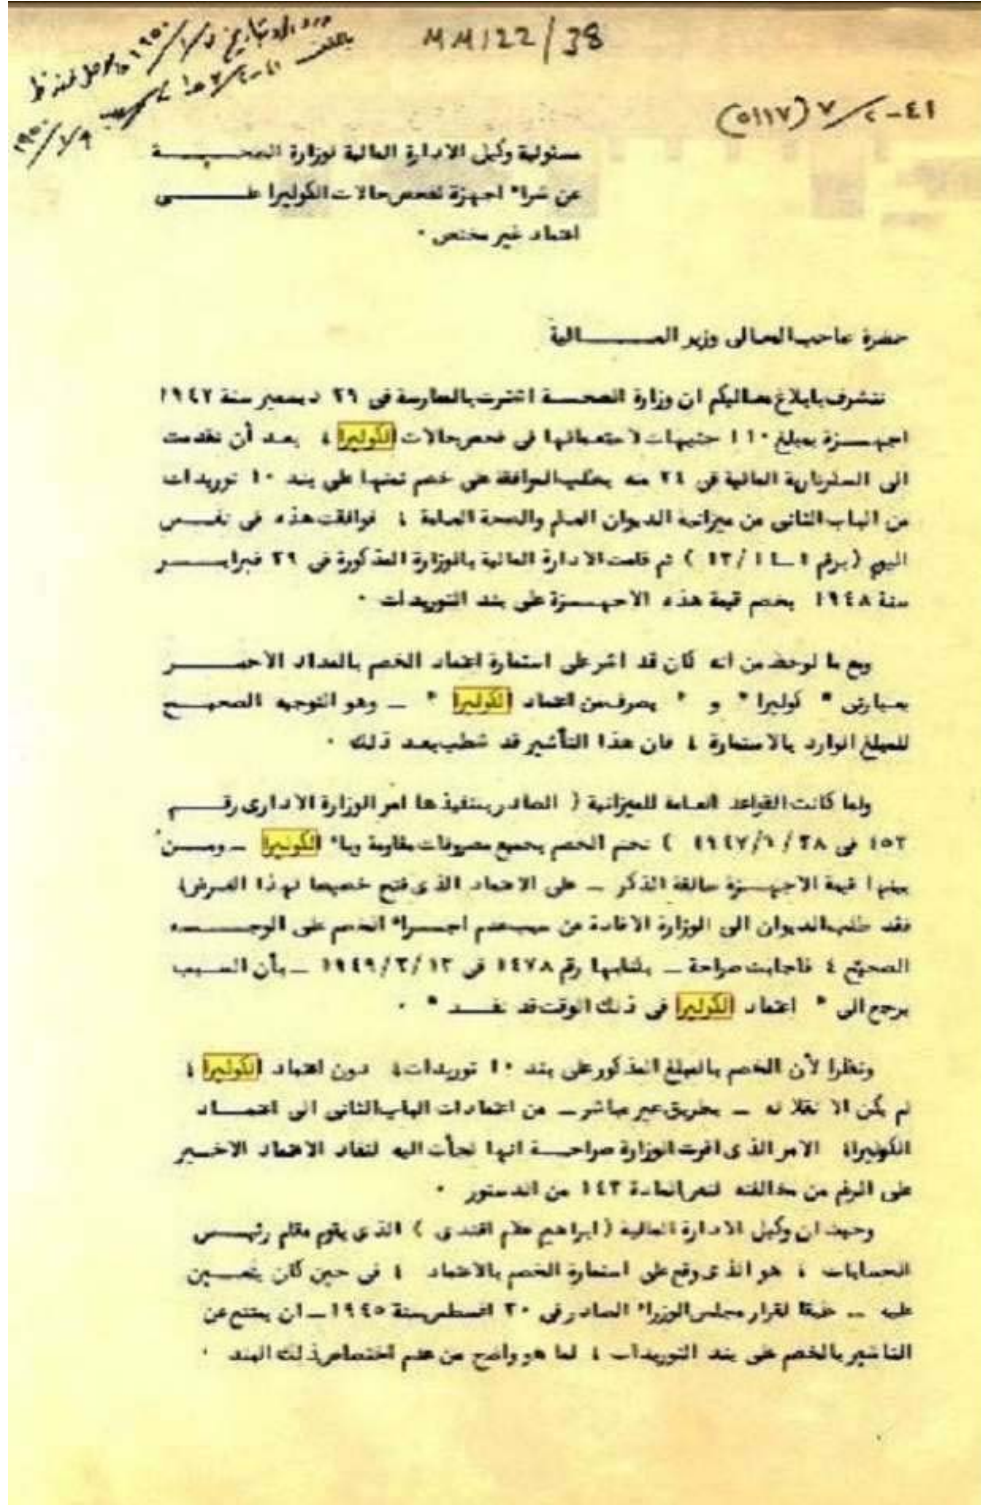 MM122/38
٤١-٢/٧ (٥١١٧)
مسئولية وكيل الادارة المالية لوزارة الصحـــــــة
عن شراء اجهزة لفحص حالات الكوليرا علـــــــى
اعتماد غير مختص ٠
حضرة صاحب المعالى وزير المـــــــالية
نتشرف بابلاغ معاليكم ان وزارة الصحـــة اشترت بالممارسة فى ٢٩ ديسمبر سنة ١٩٤٧
اجهــــزة بمبلغ ١١٠ جنيهات لاستعمالها فى فحص حالات الكوليرا ، بعد أن تقدمت
الى المالية فى ٢٤ منه بطلب الموافقة على خصم ثمنها على بند ١٠ توريدات
من الباب الثانى من ميزانية الديوان العام والصحة العامة ، فوافقت هذه فى نفــس
اليوم ( برقم ) ثم قامت الادارة المالية بالوزارة المذكورة فى ٢٩ فبرايـــــر
سنة ١٩٤٨ بخصم قيمة هذه الاجهــــزة على بند التوريدات ٠
ومع ما لوحظ من انه كان قد اشر على استمارة اعتماد الخصم بالمداد الاحمـــــر
بعبارتى " كوليرا " و " يصرف من اعتماد الكوليرا " ــ وهو التوجيه الصحيـــح
للمبلغ الوارد بالاستمارة ، فان هذا التأشير قد شطب بعد ذلك ٠
ولما كانت القواعد العامة للميزانية ( الصادر بتنفيذها امر الوزارة الادارى رقـــــم
١٥٢ فى ) تحتم الخصم بجميع مصروفات مقاومة وباء الكوليرا ــ ومـــن
بينها قيمة الاجهــــزة سالفة الذكر ــ على الاعتماد الذى فتح خصيصا لهذا الغرض،
فقد طلب الديوان الى الوزارة الافادة عن سبب عدم اجــــراء الخصم على الوجــــــه
الصحيح ، فاجابت صراحة ــ بكتابها رقم ١٤٧٨ فى ١٩٤٩/٢/١٣ ــ بأن السبب
يرجع الى " اعتماد الكوليرا فى ذلك الوقت قد نفــــد " ٠
ونظرا لأن الخصم بالمبلغ المذكور على بند ١٠ توريدات، دون اعتماد الكوليرا ،
لم يكن الا نقلا له ــ بطريق غير مباشر ــ من اعتمادات الباب الثانى الى اعتمـــــاد
الكوليرا، الامر الذى اقرت الوزارة صراحـــة انها لجأت اليه لنفاد الاعتماد الاخــير
على الرغم من مخالفته لنص المادة ١٤٣ من الدستور ٠
وحيث ان وكيل الادارة المالية ( ابراهيم افندى ) الذى يقوم مقام رئيـــس
الحسابات ، هو الذى وقع على استمارة الخصم بالاعتماد ، فى حين كان يتعـــين
عليه ــ طبقا لقرار مجلس الوزراء الصادر فى ٢٠ اغسطس سنة ١٩٤٥ ــ ان يمتنع عن
التاشير بالخصم على بند التوريدات ، لما هو واضح من عدم اختصاص ذلك البند ٠